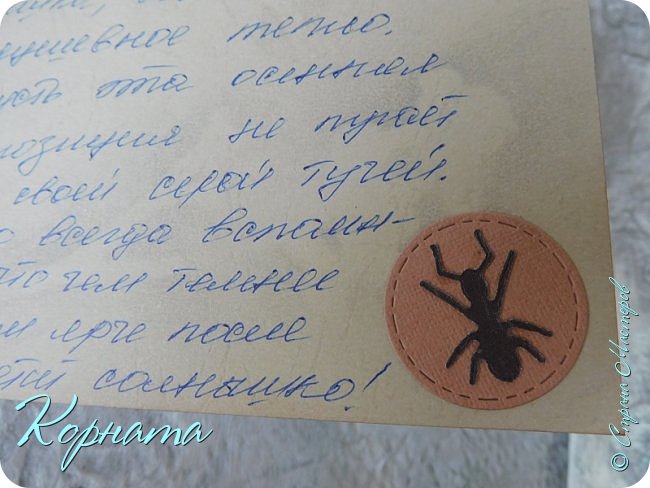 ушевное тепло.
усть эта осенняя
позиция не пугает
своей серой тучей.
о всегда вспомин-
что чем темнее
м ярче после
солнышко!
Корната
© Страна Мастеров